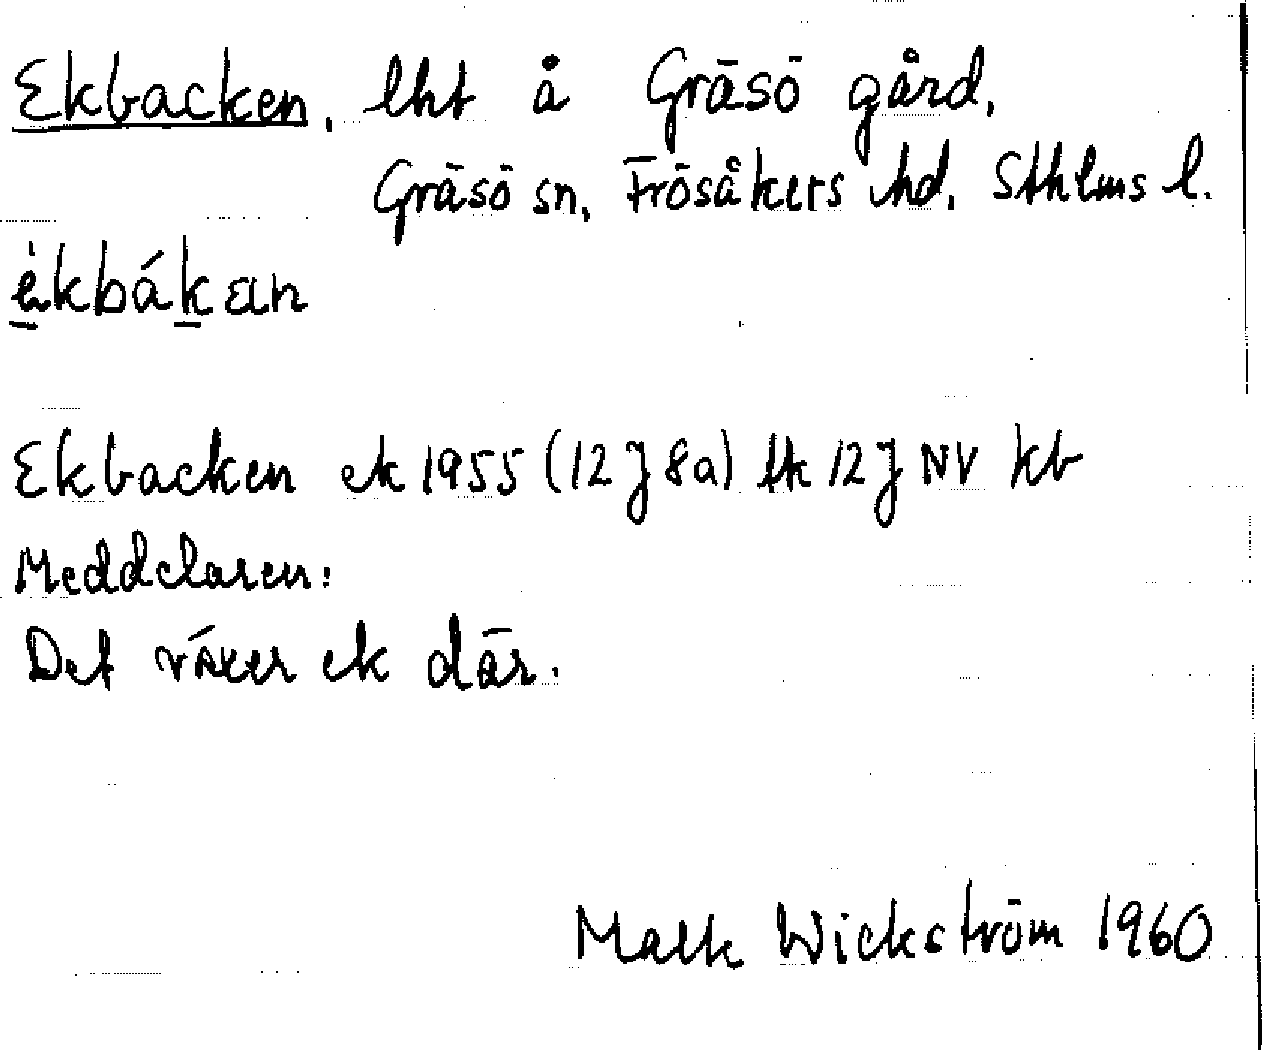 Ekbacken, lht å Gräsö gård,
Gräsö sn, Frösåkers hd, Sthlms l.
èkbákan
Ekbacken ek 1955 (12 J 8a) tk 12 J NV kb
Meddelaren:
Det växer ek där.
Wickström 1960